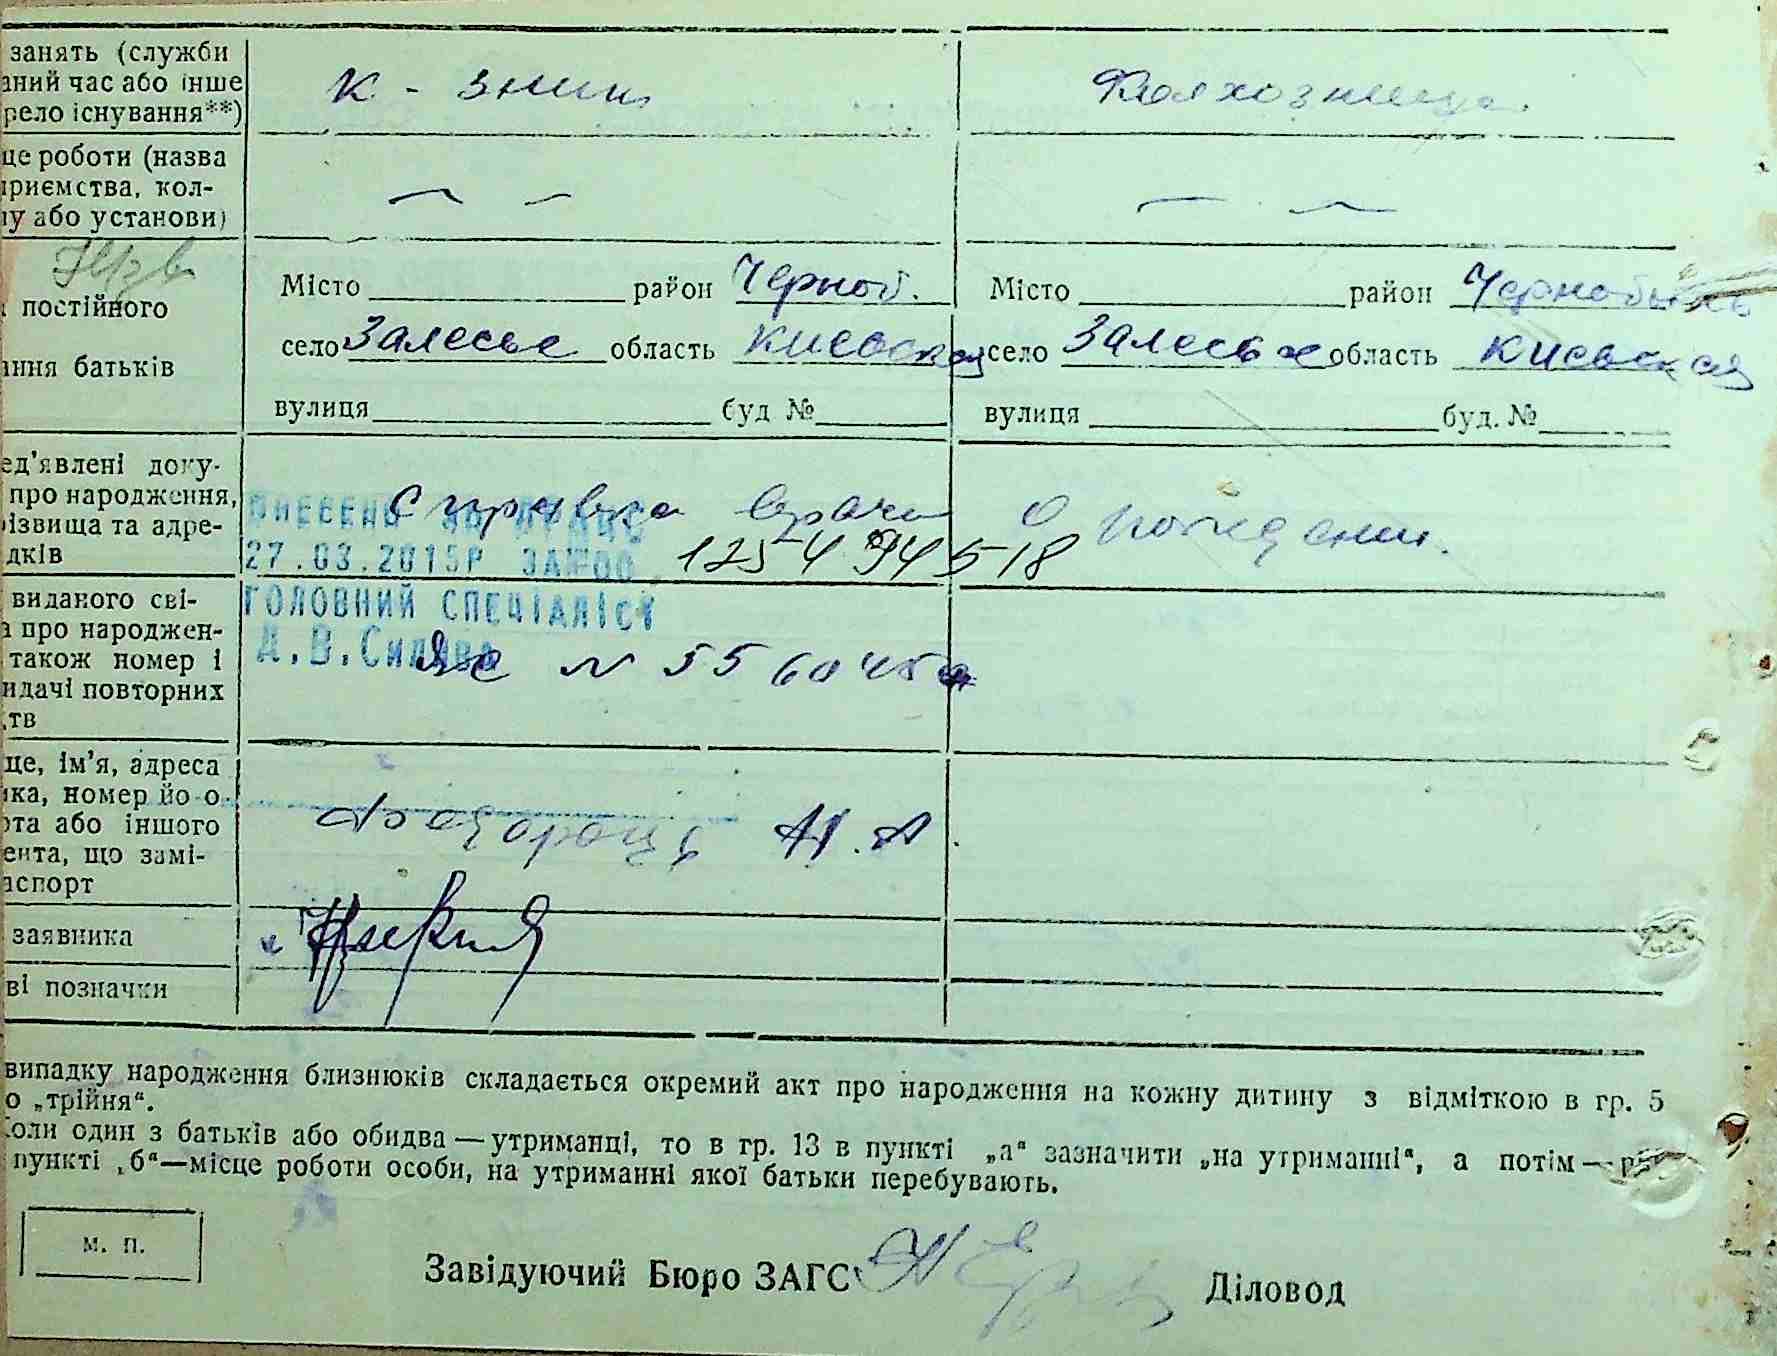 занять (служби
аний час або інше
рело існування**)
к-зник
Колхозница
це роботи (назва
приємства, кол-
у або установи)
постійного
ання батьків
Місто район Черноб.
село Залесье область Киевская
вулиця буд №
Місто район Чернобыль
село Залесье область Киевская
вулиця буд. №
ед'явлені доку-
про народження,
різвища та адре-
дків
Справка врачи о рождении.
ВНЕСЕНО ДО ДРАЦС
27.03.2015Р ЗА №00 1254 94518
ГОЛОВНИЙ СПЕЦІАЛІСТ
виданого сві-
а про народжен-
також номер і
идачі повторних
тв
N 55
це, ім'я, адреса
ика, номер йо о
рта або іншого
ента, що замі-
аспорт
заявника
ві позначки
випадку народження близнюків складається окремий акт про народження на кожну дитину з відміткою в гр. 5
о „трійня“.
Коли один з батьків або обидва — утриманці, то в гр. 13 в пункті „а“ зазначити „на утриманні“, а потім —
пункті „б“—місце роботи особи, на утриманні якої батьки перебувають.
м. п.
Завідуючий Бюро ЗАГС
Діловод